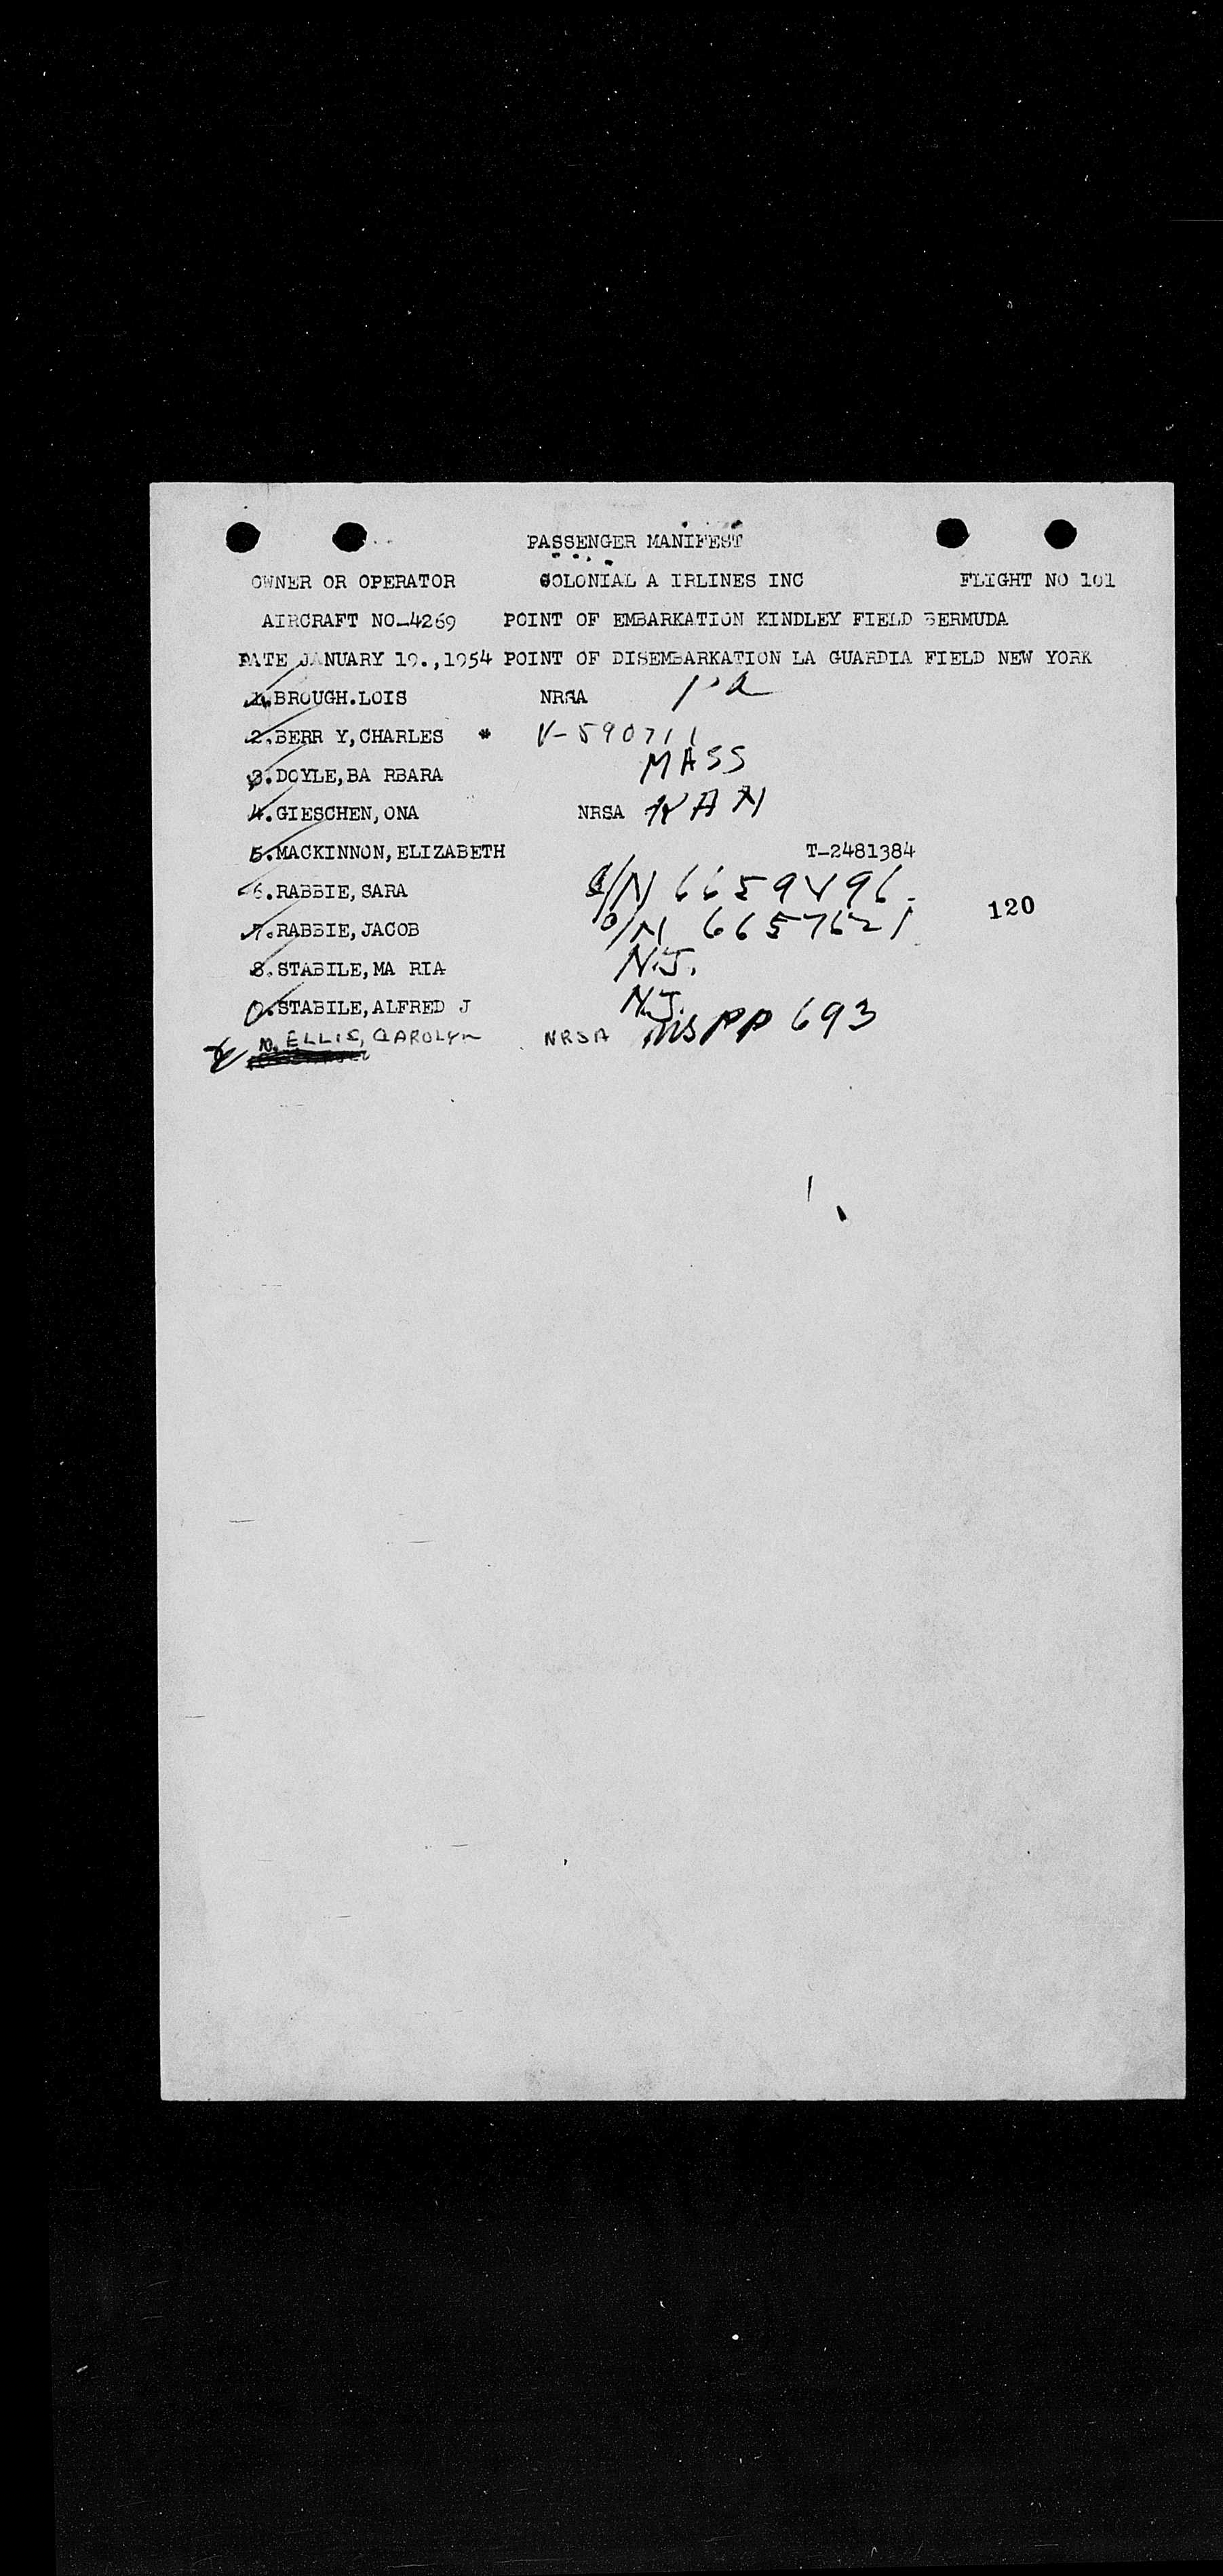 PASSENGER MANIFEST
OWNER OR OPERATOR COLONIAL A IRLINES INC FLIGHT NO 101
AIRCRAFT NO-4269 POINT OF EMBARKATION KINDLEY FIELD BERMUDA
DATE JANUARY 19.,1954 POINT OF DISEMBARKATION LA GUARDIA FIELD NEW YORK
1.BROUGH.LOIS NRSA Pa
2.BERR Y,CHARLES * V-590711
3.DOYLE,BA RBARA MASS
4.GIESCHEN,ONA NRSA KAN
5.MACKINNON,ELIZABETH T-2481384
6.RABBIE,SARA C/N 6659496.
7.RABBIE,JACOB C/N 6657621
120
8.STABILE,MA RIA N.J.
9.STABILE,ALFRED J N.J.
10. ELLIS, CAROLYN NRSA PP 693